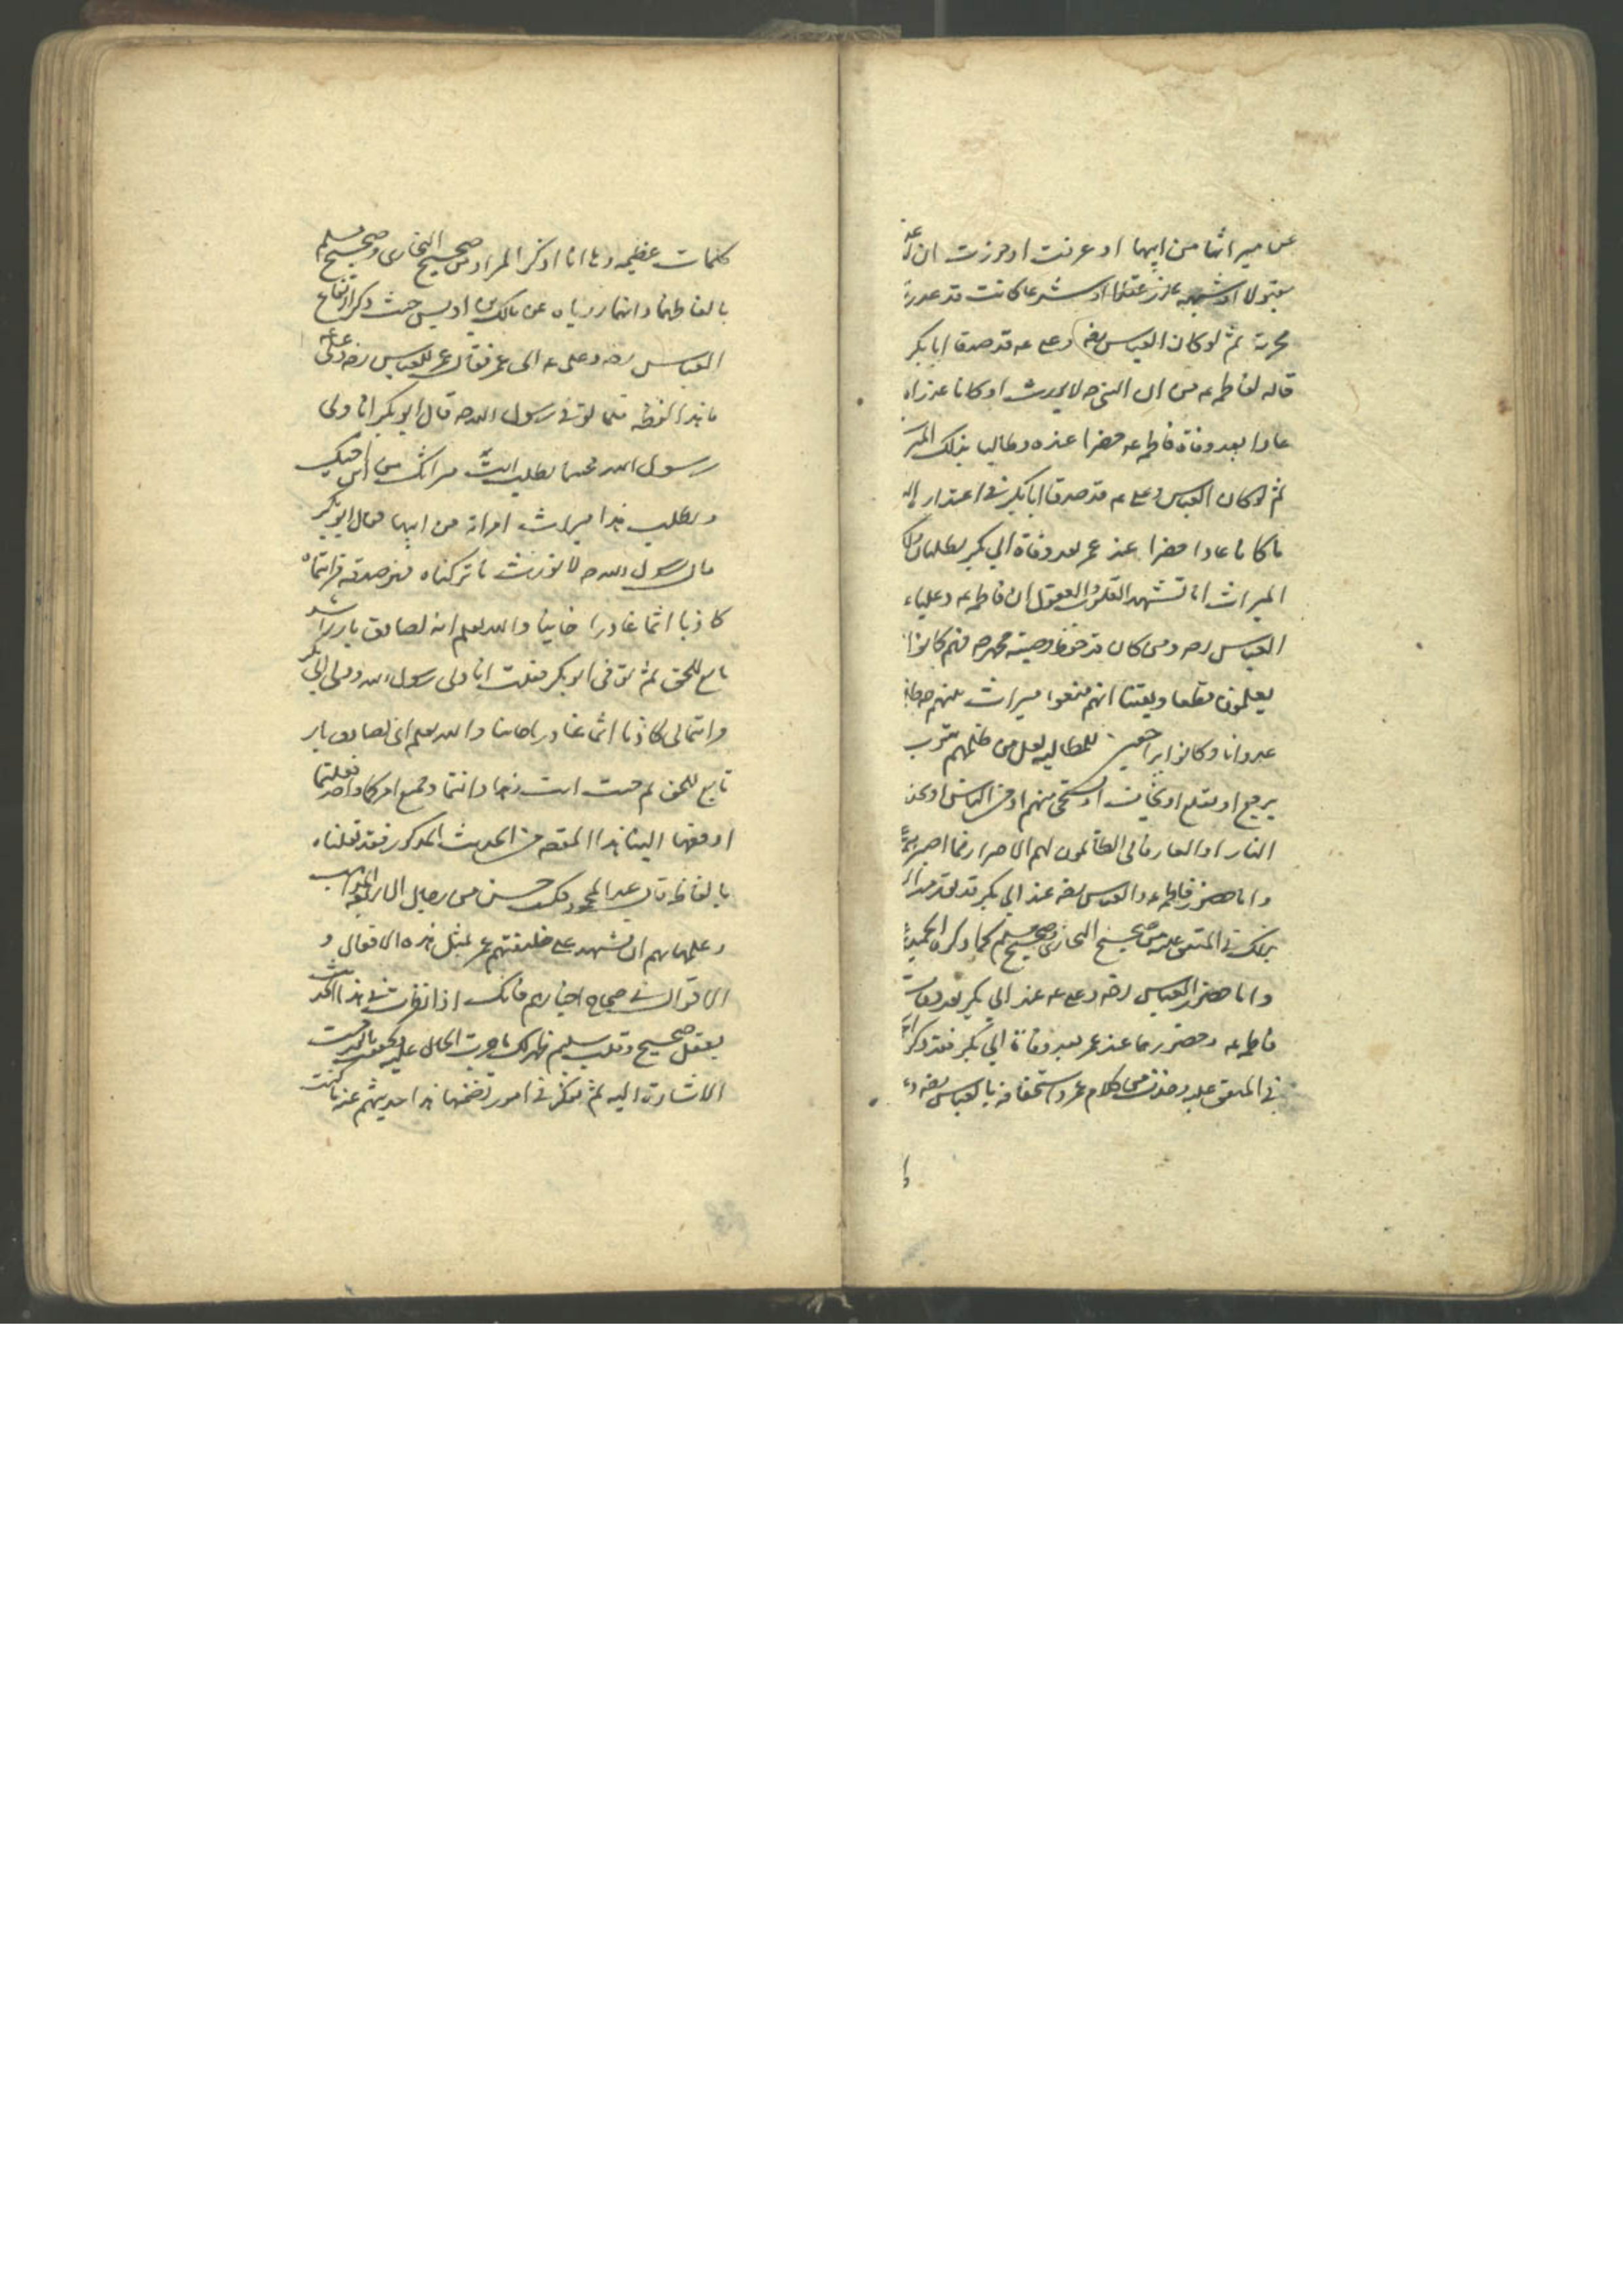 عن ميراثها من ابيها او عرفت او حرزت ان
مقبولا او شبهه عذر عقلا او شرعا كانت قد عدرت
محرية ثم لو كان العباس رضه وعلى عه قد صدقا ابا بكر
قاله لفاطمه عه من ان النبى صه لا يورث او كانا عذراه
عادا بعد وفاة فاطمه عه حضرا عنده وطالبا بذلك
ثم لو كان العباس وعلى عه قد صدقا ابا بكر فى اعتذار
ما كانا عادا حضرا عند عمر بعد وفاة ابي بكر يطلبان
الميراث اما تشهد القلوب والعقول ان فاطمه عه وعليا ع
العباس رضه ومن كان قد حفظ وصية محمد صه فهم كانوا
يعلمون قطعا ويقينا انهم منعوا ميراث نبيهم
عدوانا وكانوا يراجعون للمطالبه لعل من ظلمهم يتوب
يرجع او يقلع او يخاف او يستحى منهم او من الناس او من
النار او العار فابى الظالمون لهم الا اصرارا فما
واما حضور فاطمه عه والعباس رضه عند ابي بكر قد تقدم
بذلك فى المتفق عليه من صحيح البخارى وصحيح مسلم كما ذكره الحميدى
واما حضور العباس رضه وعلى عه عند ابي بكر بعد وفات
فاطمه عه وحضورهما عند عمر بعد وفاة ابي بكر فقد ذكر
فى المتفق عليه وحذف من كلام عمر واستخفافه بالعباس رضه
كلمات عظيمه وها انا اذكر المراد من صحيح البخارى وصحيح مسلم
بالفاظهما وانهما روياه عن مالك بن اويس حيث ذكر ارتفاع
العباس رضه وعلى عه الى عمر فقال عمر للعباس رضه وعلى عه
ما هذا لفظه فلما توفى رسول الله صه قال ابو بكر انا ولى
رسول الله فجئتما تطلب انت ميراثك من ابن اخيك
ويطلب هذا ميراث امراته من ابيها فقال ابو بكر
قال رسول الله صه لا نورث ما تركناه فهو صدقه فرايتماه
كاذبا اثما غادرا خاينا والله يعلم انه لصادق بار راشد
تابع للحق ثم توفى ابو بكر فقلت انا ولى رسول الله وولى ابى بكر
فرايتمانى كاذبا اثما غادرا خاينا والله يعلم انى لصادق بار
تابع للحق ثم جئت انت وهذا وانتما وجميع امركما واحد فقلتما
ادفعها الينا هذا المقصود من الحديث المذكور فقد نقلناه
بالفاظه قال عبد المحمود كيف حسن من رجال الاربعة المذاهب
وعلمائهم ان تشهد على خليفتهم عمر بمثل هذه الافعال و
الاقوال فى صحاح اخبارهم فانك اذا نظرت فى هذا الحديث
بعقل صحيح وقلب سليم ظهر لك ما جرت الحال عليه وتحققت ما قدمت
الاشارة اليه ثم تفكر فى امور تضمنها هذا حديثهم عنه ما كنت